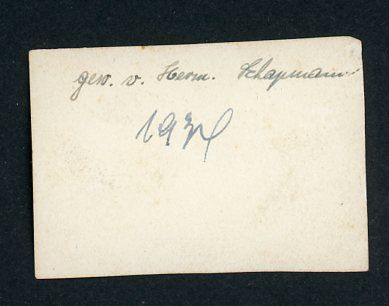 gew. v. Herm. Schapmann
1934